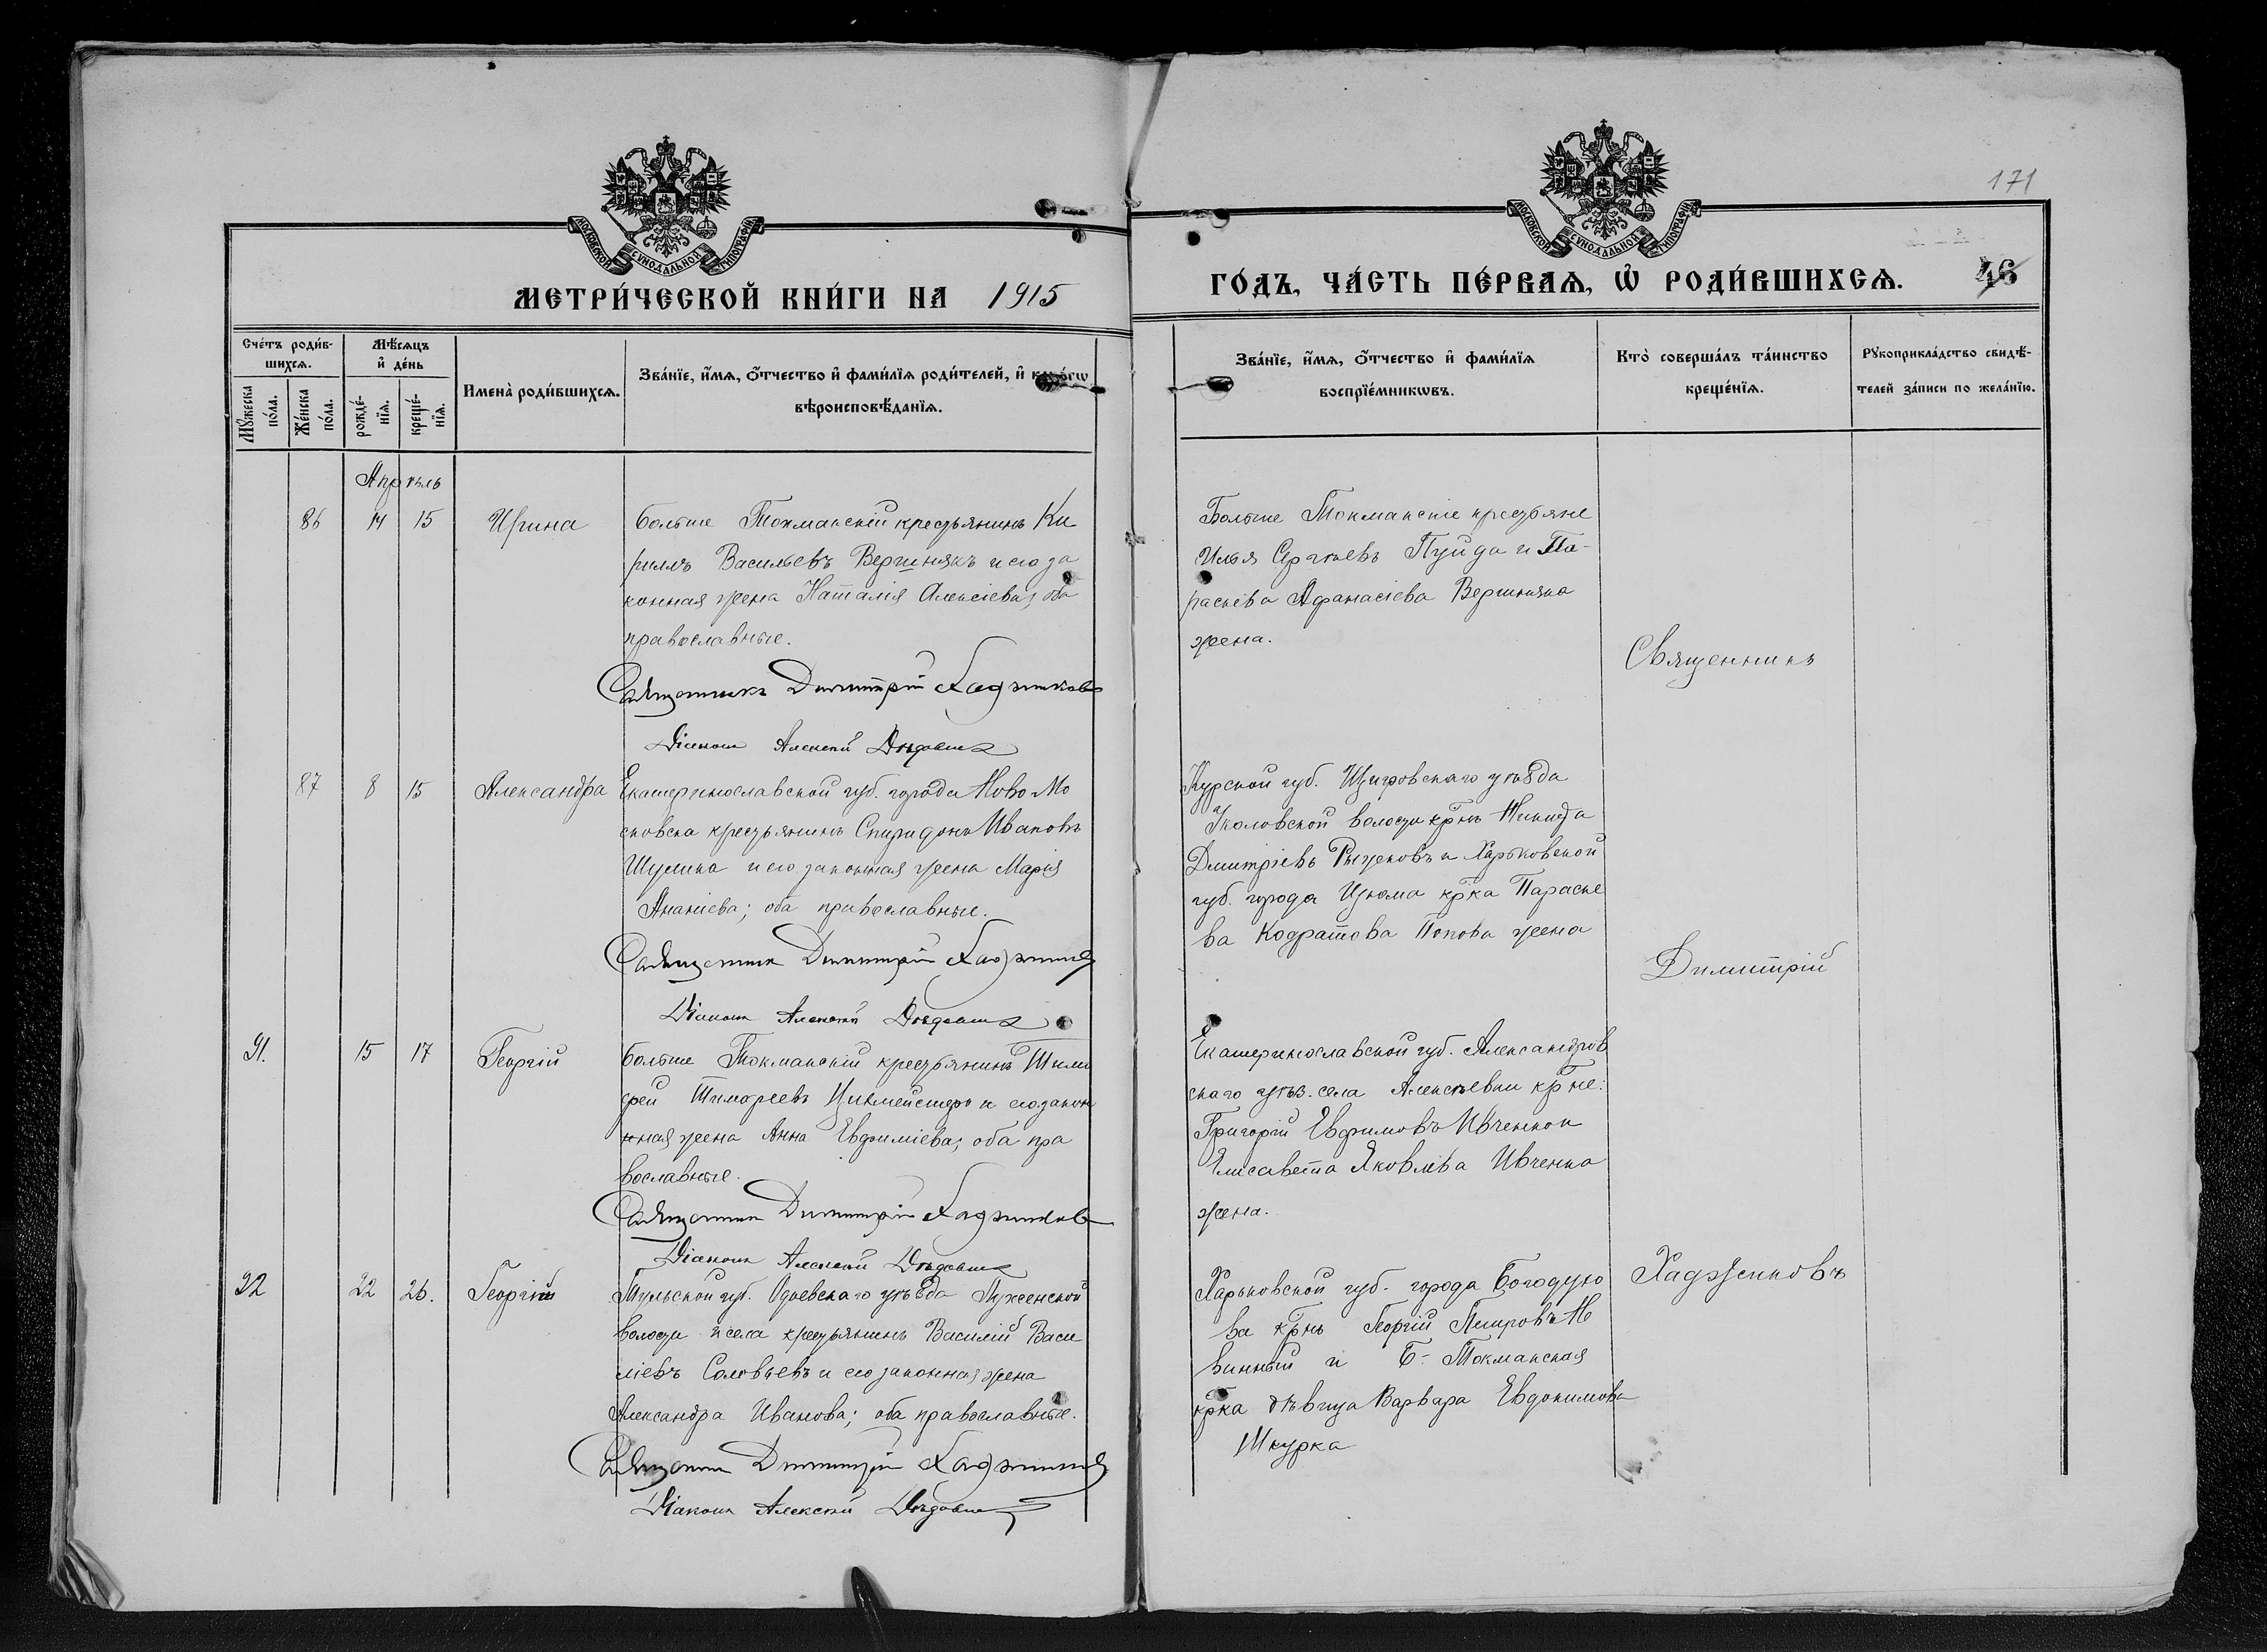 171
МОСКОВСКОЙ СѴНОДАЛЬНОЙ ТИПОГРАФІИ
МОСКОВСКОЙ СѴНОДАЛЬНОЙ ТИПОГРАФІИ
МЕТРИ́ЧЕСКОЙ КНИ́ГИ НА 1915
ГО́ДЪ, ЧА́СТЬ ПЕ́РВАѦ, Ѡ РОДИ́ВШИХСѦ. 46
Сче́тъ роди́в-
шихсѧ.
Мꙋ́жеска по́ла.
Же́нска по́ла.
Мѣ́сѧцъ
и҆ де́нь
рожде́-нїѧ.
креще́-нїѧ.
Имена̀ роди́вшихсѧ.
Зва́нїе, и҆́мѧ, ѻ҆́тчество и҆ фами́лїѧ роди́телей, и҆
вѣроисповѣ́данїѧ.
Зва́нїе, и҆́мѧ, ѻ҆́тчество и҆ фами́лїѧ
воспрїе́мникѡвъ.
Кто̀ соверша́лъ та́инство
креще́нїѧ.
Рꙋкоприкла́дство свидѣ́-
телей за́писи по жела́нїю.
Апрѣль
86 14 15 Ирина
Больше Токманскій крестьянинъ Ки
риллъ Васильевъ Вергинякъ и его за
конная жена Наталія Алексіева; оба
православные.
Священникъ Димитрій Хаджиновъ
Діаконъ Алексій
Больше Токманскіе крестьяне
Илья Сергѣевъ Пуйда и Па-
раскева Афанасіева Вергиняка
жена.
87 8 15 Александра
Екатеринославской губ. города Ново Мо
сковска крестьянинъ Спиридонъ Ивановъ
Шулика и его законная жена Марія
Ананіева; оба православные.
Священникъ Димитрій Хаджиновъ
Діаконъ Алексій
Курской губ. Щигровскаго уѣзда
волости кр̅нъ Никита
Дмитріевъ Рыжковъ и Харьковской
губ. города Изюма кр̅ка Параске
ва Кодратова Попова жена
91. 15 17 Георгій
Больше Токманскій крестьянинъ Тимо
фей Тимофеевъ Цикмейстеръ и его закон
ная жена Анна Евфиміева; оба пра
вославные.
Священникъ Димитрій Хаджиновъ
Діаконъ Алексій
Екатеринославской губ. Александров
скаго уѣз. села Алексѣевки кр̅не:
Григорій Евфимовъ Ивченко и
Елисавета Яковлева Ивченка
жена.
92 22 26. Георгій
Тульской губ. Одоевскаго уѣзда
волости и села крестьянинъ Василій Васи
ліевъ Соловьевъ и его законная жена
Александра Иванова; оба православные.
Священникъ Димитрій Хаджиновъ
Діаконъ Алексій
Харьковской губ. города Богодухо
ва кр̅нъ Георгій Петровъ Не
винный и Б-Токманская
кр̅ка дѣвица Варвара Евдокимова
Шкурка
Священникъ
Димитрій
Хаджиновъ